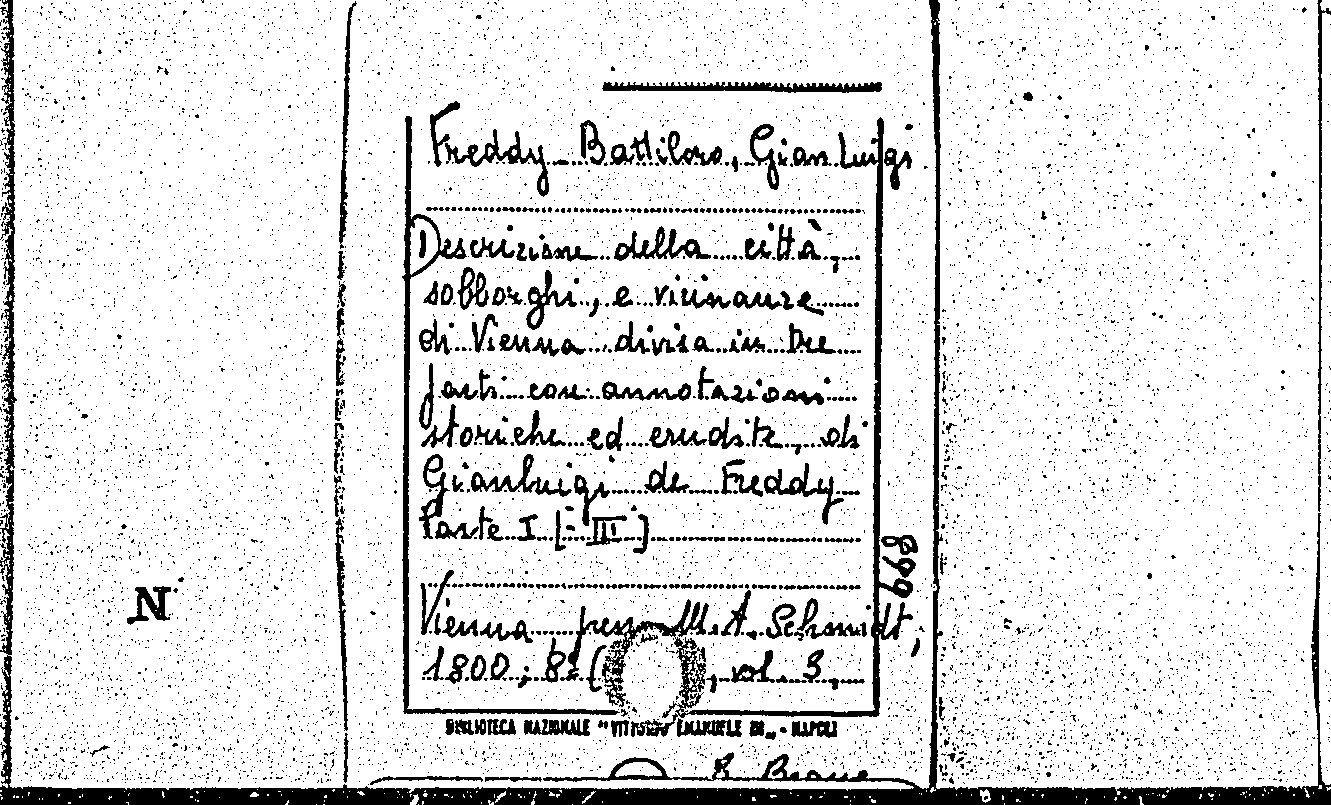 Freddy - Battiloro, Gian Luigi
Descrizione della città,
sobborghi, e vicinanze
di Vienna divisa in tre
parti con annotazioni
storiche ed erudite, di
Gianluigi de Freddy
Parte I [- III]
899
Vienna, presso M. A. Schmidt,
1800; 8º ( , vol. 3,
BIBLIOTECA NAZIONALE "VITTORIO EMANUELE III" - NAPOLI
N